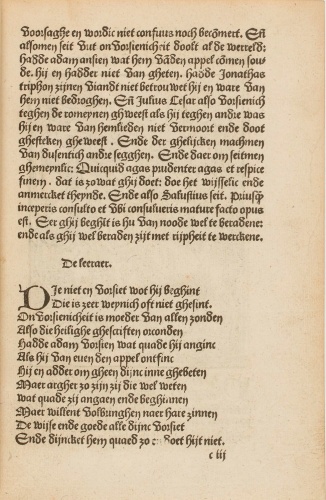 voorsaghe en wordic niet confuus noch becōmert. Eñ
alsomen seit Vut onvorsienicheit doolt al de werreld:
hadde adam ansien wat hem vāden appel cōmen sou
de. hij en hadder niet van gheten. hadde Jonathas
triphon zijnen viandt niet betrouwet hij en ware van
hem niet bedroghen. Eñ Julius Cesar also vorsienich
teghen de romeynen ghweest als hij teghen andre was
hij en ware van hemlieden niet vermoort ende doot
ghesteken gheweest. Ende der ghelijcker machmen
van dusentich andre segghen. Ende daer om seitmen
ghemeynlic: Quicquid agas prudenter agas et respice
finem. dat is zo wat ghij doet: doe het wijsselic ende
anmercket theynde. Ende also Salustius seit. Priusq̄
inceperis consulto et vbi consulueris mature facto opus
est. Eer ghij beghīt is hu van noode wel te beradene:
ende als ghij wel beraden zijt met rijpheit te werckene.
De leeraer.
DJe niet en vorsiet wot hij beghint
Die is zeer weynich oft niet ghesint.
Onvorsienicheit is moeder van allen zonden
Also die heilighe ghescriften orconden
Hadde adam vorsien wat quade hij anginc
Als hij van even den appel ontfinc
Hij en adder om gheen dijnc inne ghebeten
Maer argher zo zijn zij die wel weten
wat quade zij angaen ende beghinnen
Maer willent volbringhen naer hare zinnen
De wijse ende goede alle dijnc vorsiet
Ende dijncket hem quaed zo doet hijt niet.
c iij